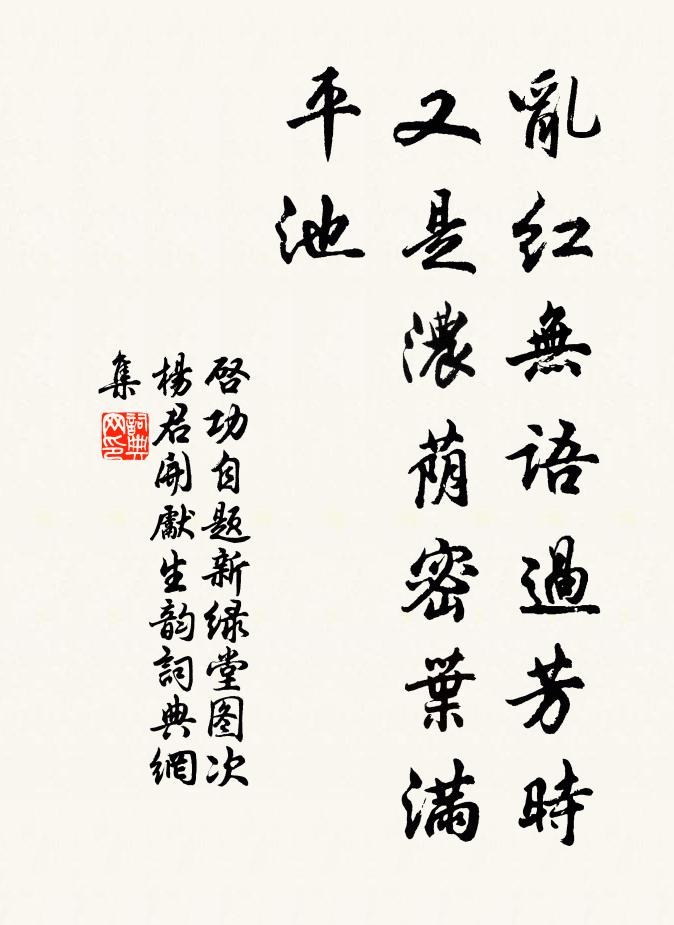 亂紅無語過芳時
又是濃荫密葉滿
平池
啓功自題新緑堂图次
楊君開獻生韵詞典網
集
詞典
网印